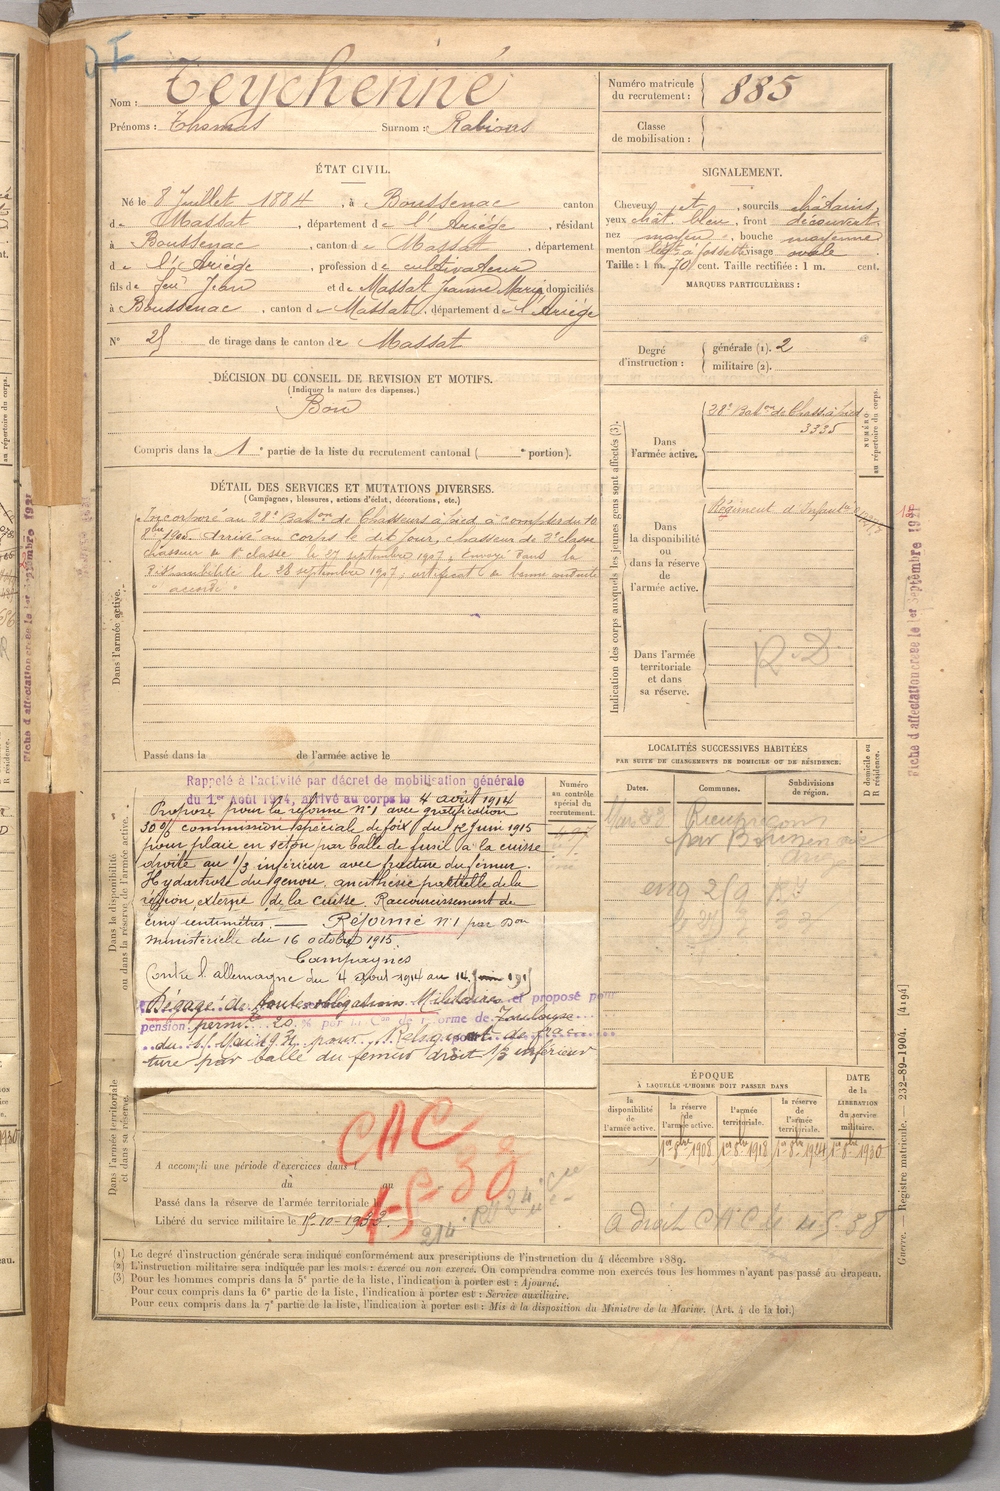 Nom : Teychenné
Prénoms : Thomas Surnom : Rabious
Numéro matricule du recrutement : 885
Classe de mobilisation :
ÉTAT CIVIL.
Né le 8 Juillet 1884, à Boussenac canton
de Massat, département de l'Ariège, résidant
à Boussenac, canton de Massat, département
de l'Ariège, profession de cultivateur
fils de feu Jean et de Massat Jeanne Marie domiciliés
à Boussenac, canton de Massat, département de l'Ariège
N° 25 de tirage dans le canton de Massat
SIGNALEMENT.
Cheveux et, sourcils châtains,
yeux chât. bleu, front découvert
nez moyen, bouche moyenne
menton à fossette visage ovale.
Taille : 1 m. 70 cent. Taille rectifiée : 1 m. cent.
MARQUES PARTICULIÈRES :
Degré d'instruction : générale (1). 2
militaire (2).
DÉCISION DU CONSEIL DE REVISION ET MOTIFS.
(Indiquer la nature des dispenses.)
Bon
Compris dans la 1e partie de la liste du recrutement cantonal ( e portion).
DÉTAIL DES SERVICES ET MUTATIONS DIVERSES.
(Campagnes, blessures, actions d'éclat, décorations, etc.)
Dans l'armée active.
Incorporé au 28e Baton de Chasseurs à pied à compter du 10
8bre 1905. Arrivé au corps le dit jour, chasseur de 2e classe
chasseur de 1e classe le 27 septembre 1907, Envoyé dans la
disponibilité le 28 septembre 1907, certificat de bonne conduite
" accordé "
Passé dans la de l'armée active le
Indication des corps auxquels les jeunes gens sont affectés (3).
Dans l'armée active.
28e Baton de Chass. à pied
3335
NUMÉRO au répertoire du corps.
Dans la disponibilité ou dans la réserve de l'armée active.
Régiment d'Infanterie
Dans l'armée territoriale et dans sa réserve.
R.D.
Fiche d'affectation créée le 1er Septembre 1921
LOCALITÉS SUCCESSIVES HABITÉES
PAR SUITE DE CHANGEMENTS DE DOMICILE OU DE RÉSIDENCE.
D domicile ou R résidence.
Dates. Communes. Subdivisions de région.
par Boussenac
Dans la disponibilité ou dans la réserve de l'armée active.
Numéro au contrôle spécial du recrutement.
Rappelé à l'activité par décret de mobilisation générale
du 1er Août 1914, arrivé au corps le 4 août 1914
Proposé pour la réforme N°1 avec gratification
30% commission spéciale de foix du 12 Juin 1915
pour plaie en seton par balle de fusil à la cuisse
droite au 1/3 inférieur avec fracture du fémur.
Hydartrose du genou, anesthésie partielle de la
région externe de la cuisse. Raccourcissement de
cinq centimètres. — Réformé N°1 par Don
ministérielle du 16 octobre 1915.
Campagnes
Contre l'allemagne du 4 août 1914 au 14 Juin 1915
Dégagé de toutes obligations Militaires et proposé pour
pension perm. 20 % par la Con de réforme de Toulouse
du Mai 1931 pour : Reliquat de frac
ture par balle du fémur droit 1/3 inférieur
Dans l'armée territoriale et dans sa réserve.
CAC
1-5-38
A accompli une période d'exercices dans
du au
Passé dans la réserve de l'armée territoriale le
Libéré du service militaire le 15-10-1933.
ÉPOQUE
À LAQUELLE L'HOMME DOIT PASSER DANS
la disponibilité de l'armée active.
la réserve de l'armée active.
l'armée territoriale.
la réserve de l'armée territoriale.
DATE de la LIBÉRATION du service militaire.
1er 8bre 1908 1er 8bre 1918 1er 8bre 1924 1er 8bre 1930
a droit CAC
Guerre. — Registre matricule. — 232-89-1904. [4194]
(1) Le degré d'instruction générale sera indiqué conformément aux prescriptions de l'instruction du 4 décembre 1889.
(2) L'instruction militaire sera indiquée par les mots : exercé ou non exercé. On comprendra comme non exercés tous les hommes n'ayant pas passé au drapeau.
(3) Pour les hommes compris dans la 5e partie de la liste, l'indication à porter est : Ajourné.
Pour ceux compris dans la 6e partie de la liste, l'indication à porter est : Service auxiliaire.
Pour ceux compris dans la 7e partie de la liste, l'indication à porter est : Mis à la disposition du Ministre de la Marine. (Art. 4 de la loi.)